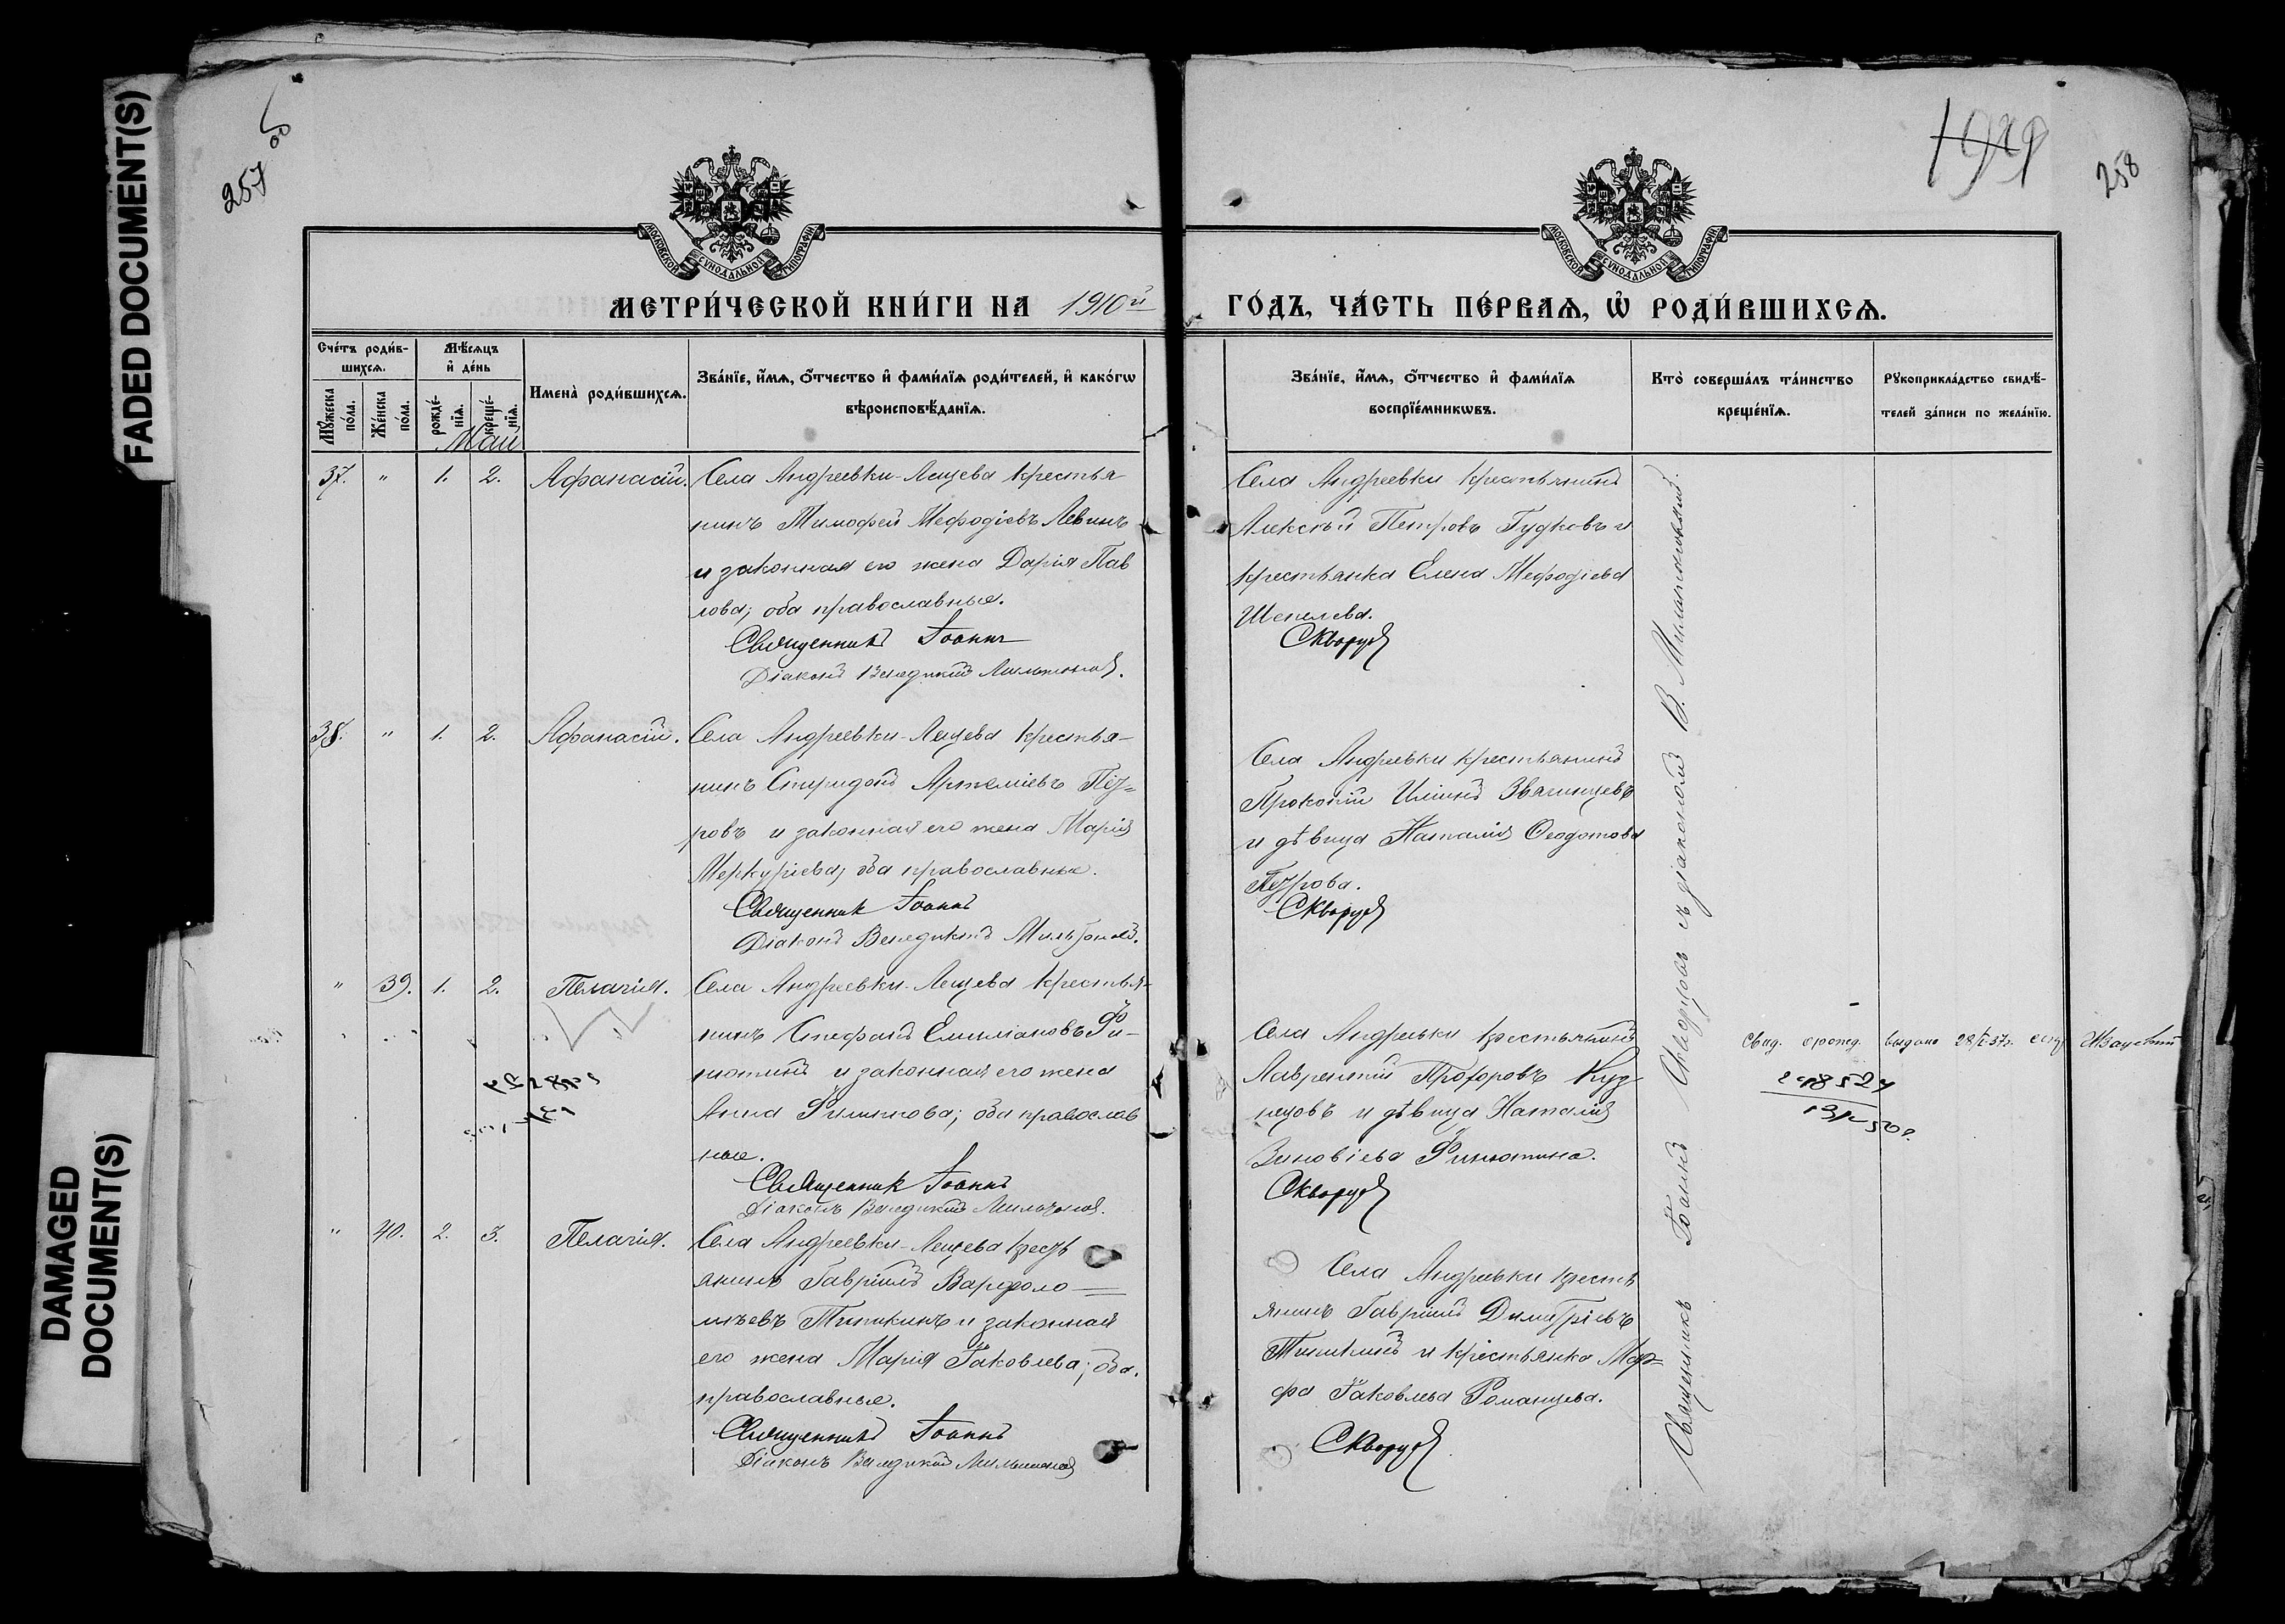 FADED DOCUMENT(S)
DAMAGED DOCUMENT(S)
257
1929
258
МОСКОВСКОЙ СѴНОДАЛЬНОЙ ТИПОГРАФІИ
МОСКОВСКОЙ СѴНОДАЛЬНОЙ ТИПОГРАФІИ
МЕТРИ́ЧЕСКОЙ КНИ́ГИ НА 1910й
ГО́ДЪ, ЧА́СТЬ ПЕ́РВАѦ, Ѡ҆ РОДИ́ВШИХСѦ.
Сче́тъ роди́в-
шихсѧ.
Мꙋ́жеска по́ла.
Же́нска по́ла.
Мѣ́сѧцъ
и҆ де́нь
рожде́-
нїѧ.
креще́-
нїѧ.
Имена̀ роди́вшихсѧ.
Зва́нїе, и҆́мѧ, ѻ҆́тчество и҆ фами́лїѧ роди́телей, и҆ како́гѡ
вѣроисповѣ́данїѧ.
Зва́нїе, и҆́мѧ, ѻ҆́тчество и҆ фами́лїѧ
воспрїе́мникѡвъ.
Кто̀ соверша́лъ та́инство
креще́нїѧ.
Рꙋкоприкла́дство свидѣ́-
телей за́писи по жела́нїю.
Май
37. " 1. 2. Афанасій.
Села Андреевки-Лещева крестья
нинъ Тимофей Мефодіевъ Левинъ
и законная его жена Дарія Пав
лова; оба православные.
Священникъ Іоаннъ
Діаконъ Венедиктъ Мильтоновъ.
Села Андреевки крестьянинъ
Алексѣй Петровъ Гудковъ и
крестьянка Елена Мефодіева
Шепелева.
Скворцовъ
38. " 1. 2. Афанасій.
Села Андреевки-Лещева крестья-
нинъ Спиридонъ Артеміевъ Пуз-
ровъ и законная его жена Марія
Меркуріева; оба православные.
Священникъ Іоаннъ
Діаконъ Венедиктъ Мильтоновъ.
Села Андреевки крестьянинъ
Прокопій Иліинъ Звягинцевъ
и дѣвица Наталія Ѳеодотова
Скворцовъ
" 39. 1. 2. Пелагія.
Села Андреевки-Лещева крестья-
нинъ Стефанъ Емиліановъ Фи-
нютинъ и законная его жена
Анна Филиппова; оба православ
ные.
Священникъ Іоаннъ
Діаконъ Венедиктъ Мильтоновъ.
Села Андреевки крестьянинъ
Лаврентій Прохоровъ Куз-
нецовъ и дѣвица Наталія
Зиновіева Финютина.
Скворцовъ
Свид. о рожд. выдано 28/I-37г.
" 40. 2. 3. Пелагія.
Села Андреевки-Лещева крест
янинъ Гавріилъ Варфоло-
мѣевъ Тишкинъ и законная
его жена Марія Іаковлева; оба
православные.
Священникъ Іоаннъ
Діаконъ Венедиктъ Мильтоновъ
Села Андреевки крестъ
янинъ Гавріилъ Димитріевъ
Тишкинъ и крестьянка Мар-
фа Іаковлева Романцева.
Скворцовъ
Священникъ Іоаннъ Скворцовъ съ діакономъ В. Мильтоновымъ.